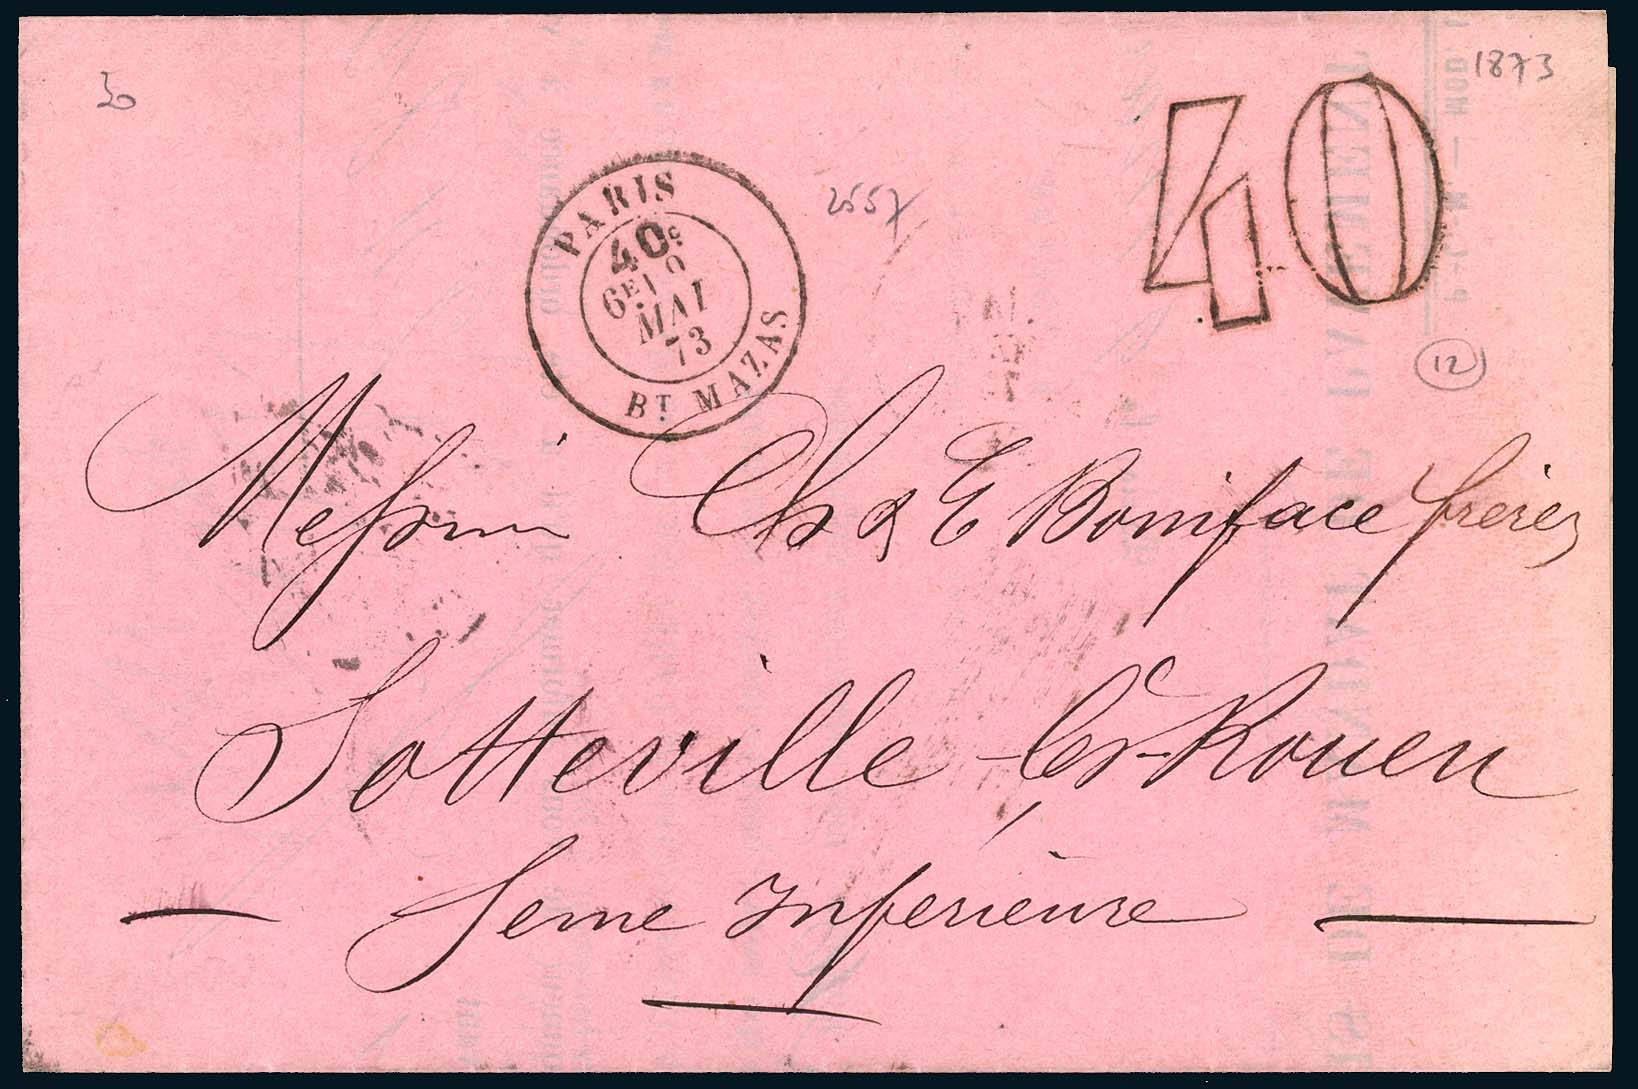 1873
40
PARIS
40c
6E 10
MAI
73
BT MAZAS
2557
12
Messrs Ch & E Boniface frères
Sotteville-lès-Rouen
Seine Inférieure